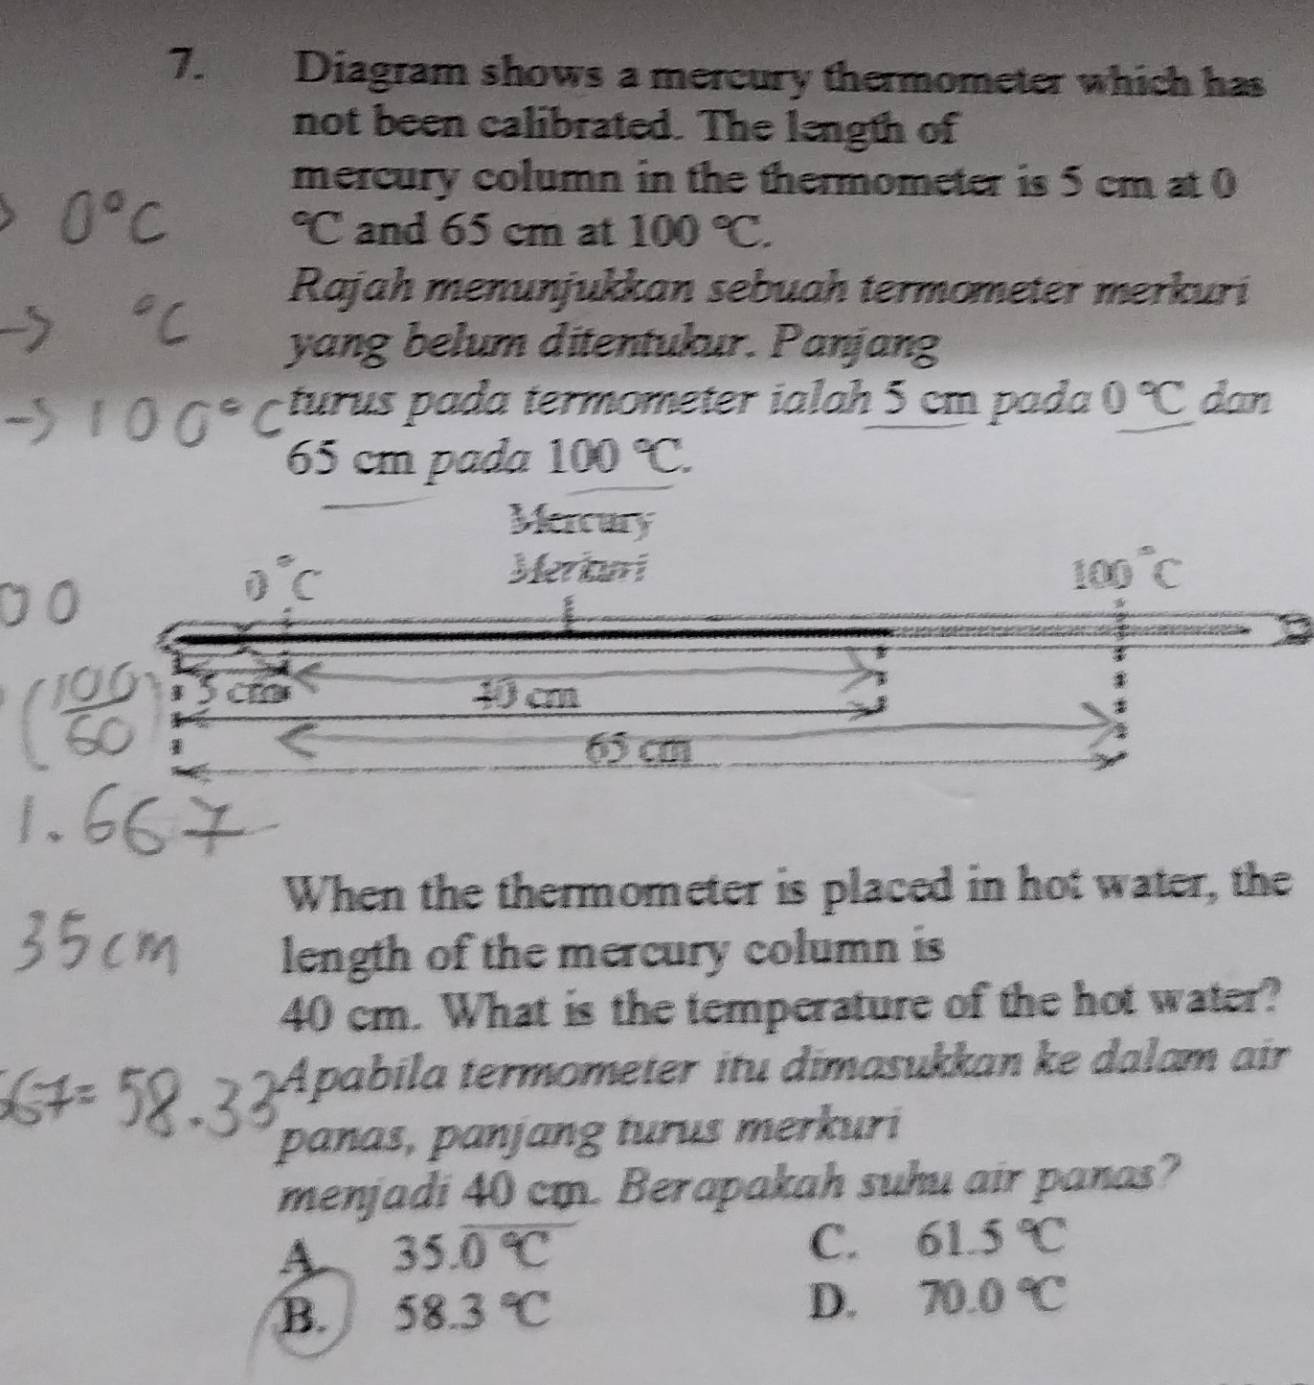 7. Diagram shows a mercury thermometer which has
not been calibrated. The length of
mercury column in the thermometer is 5 cm at 0
0°C
°C and 65 cm at 100 °C.
Rajah menunjukkan sebuah termometer merkuri
→ °C
yang belum ditentukur. Panjang
→ 100°C
turus pada termometer ialah 5 cm pada 0 °C dan
65 cm pada 100 °C.
Mercury
Merkuri
0°C
100°C
00
(100/60)
5 cm
40 cm
65 cm
1.667
When the thermometer is placed in hot water, the
35cm
length of the mercury column is
40 cm. What is the temperature of the hot water?
67= 58.33
Apabila termometer itu dimasukkan ke dalam air
panas, panjang turus merkuri
menjadi 40 cm. Berapakah suhu air panas?
A. 35.0 °C
C. 61.5 °C
B. 58.3 °C
D. 70.0 °C